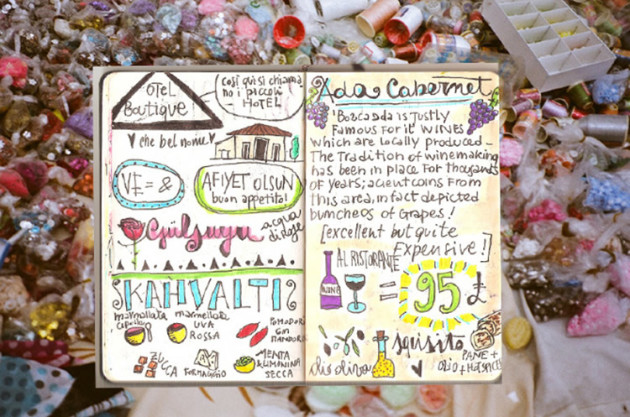 OTEL
Boutique
Così qui si chiamano
i piccoli
HOTEL
♥ che bel nome ♥
VE = &
AFIYET OLSUN
buon appetito!
Gülsuyu
acqua
di rose
KAHVALTI
marmellata
marmellata
UVA
ROSSA
POMODORI
CON
ZUCCA
FORMAGGIO
MENTA
SECCA
Ada Cabernet
"Bozcada is justly
Famous for it WINES
which are locally produced -
The Tradition of winemaking
has been in place for thousands
of years; acient coins from
this area, in fact depicted
buncheos of Grapes!
[excellent but quite
Expensive!]
AL RISTORANTE
WINE
= 95 £
squisito
olio d'oliva
PANE +
OLIO +